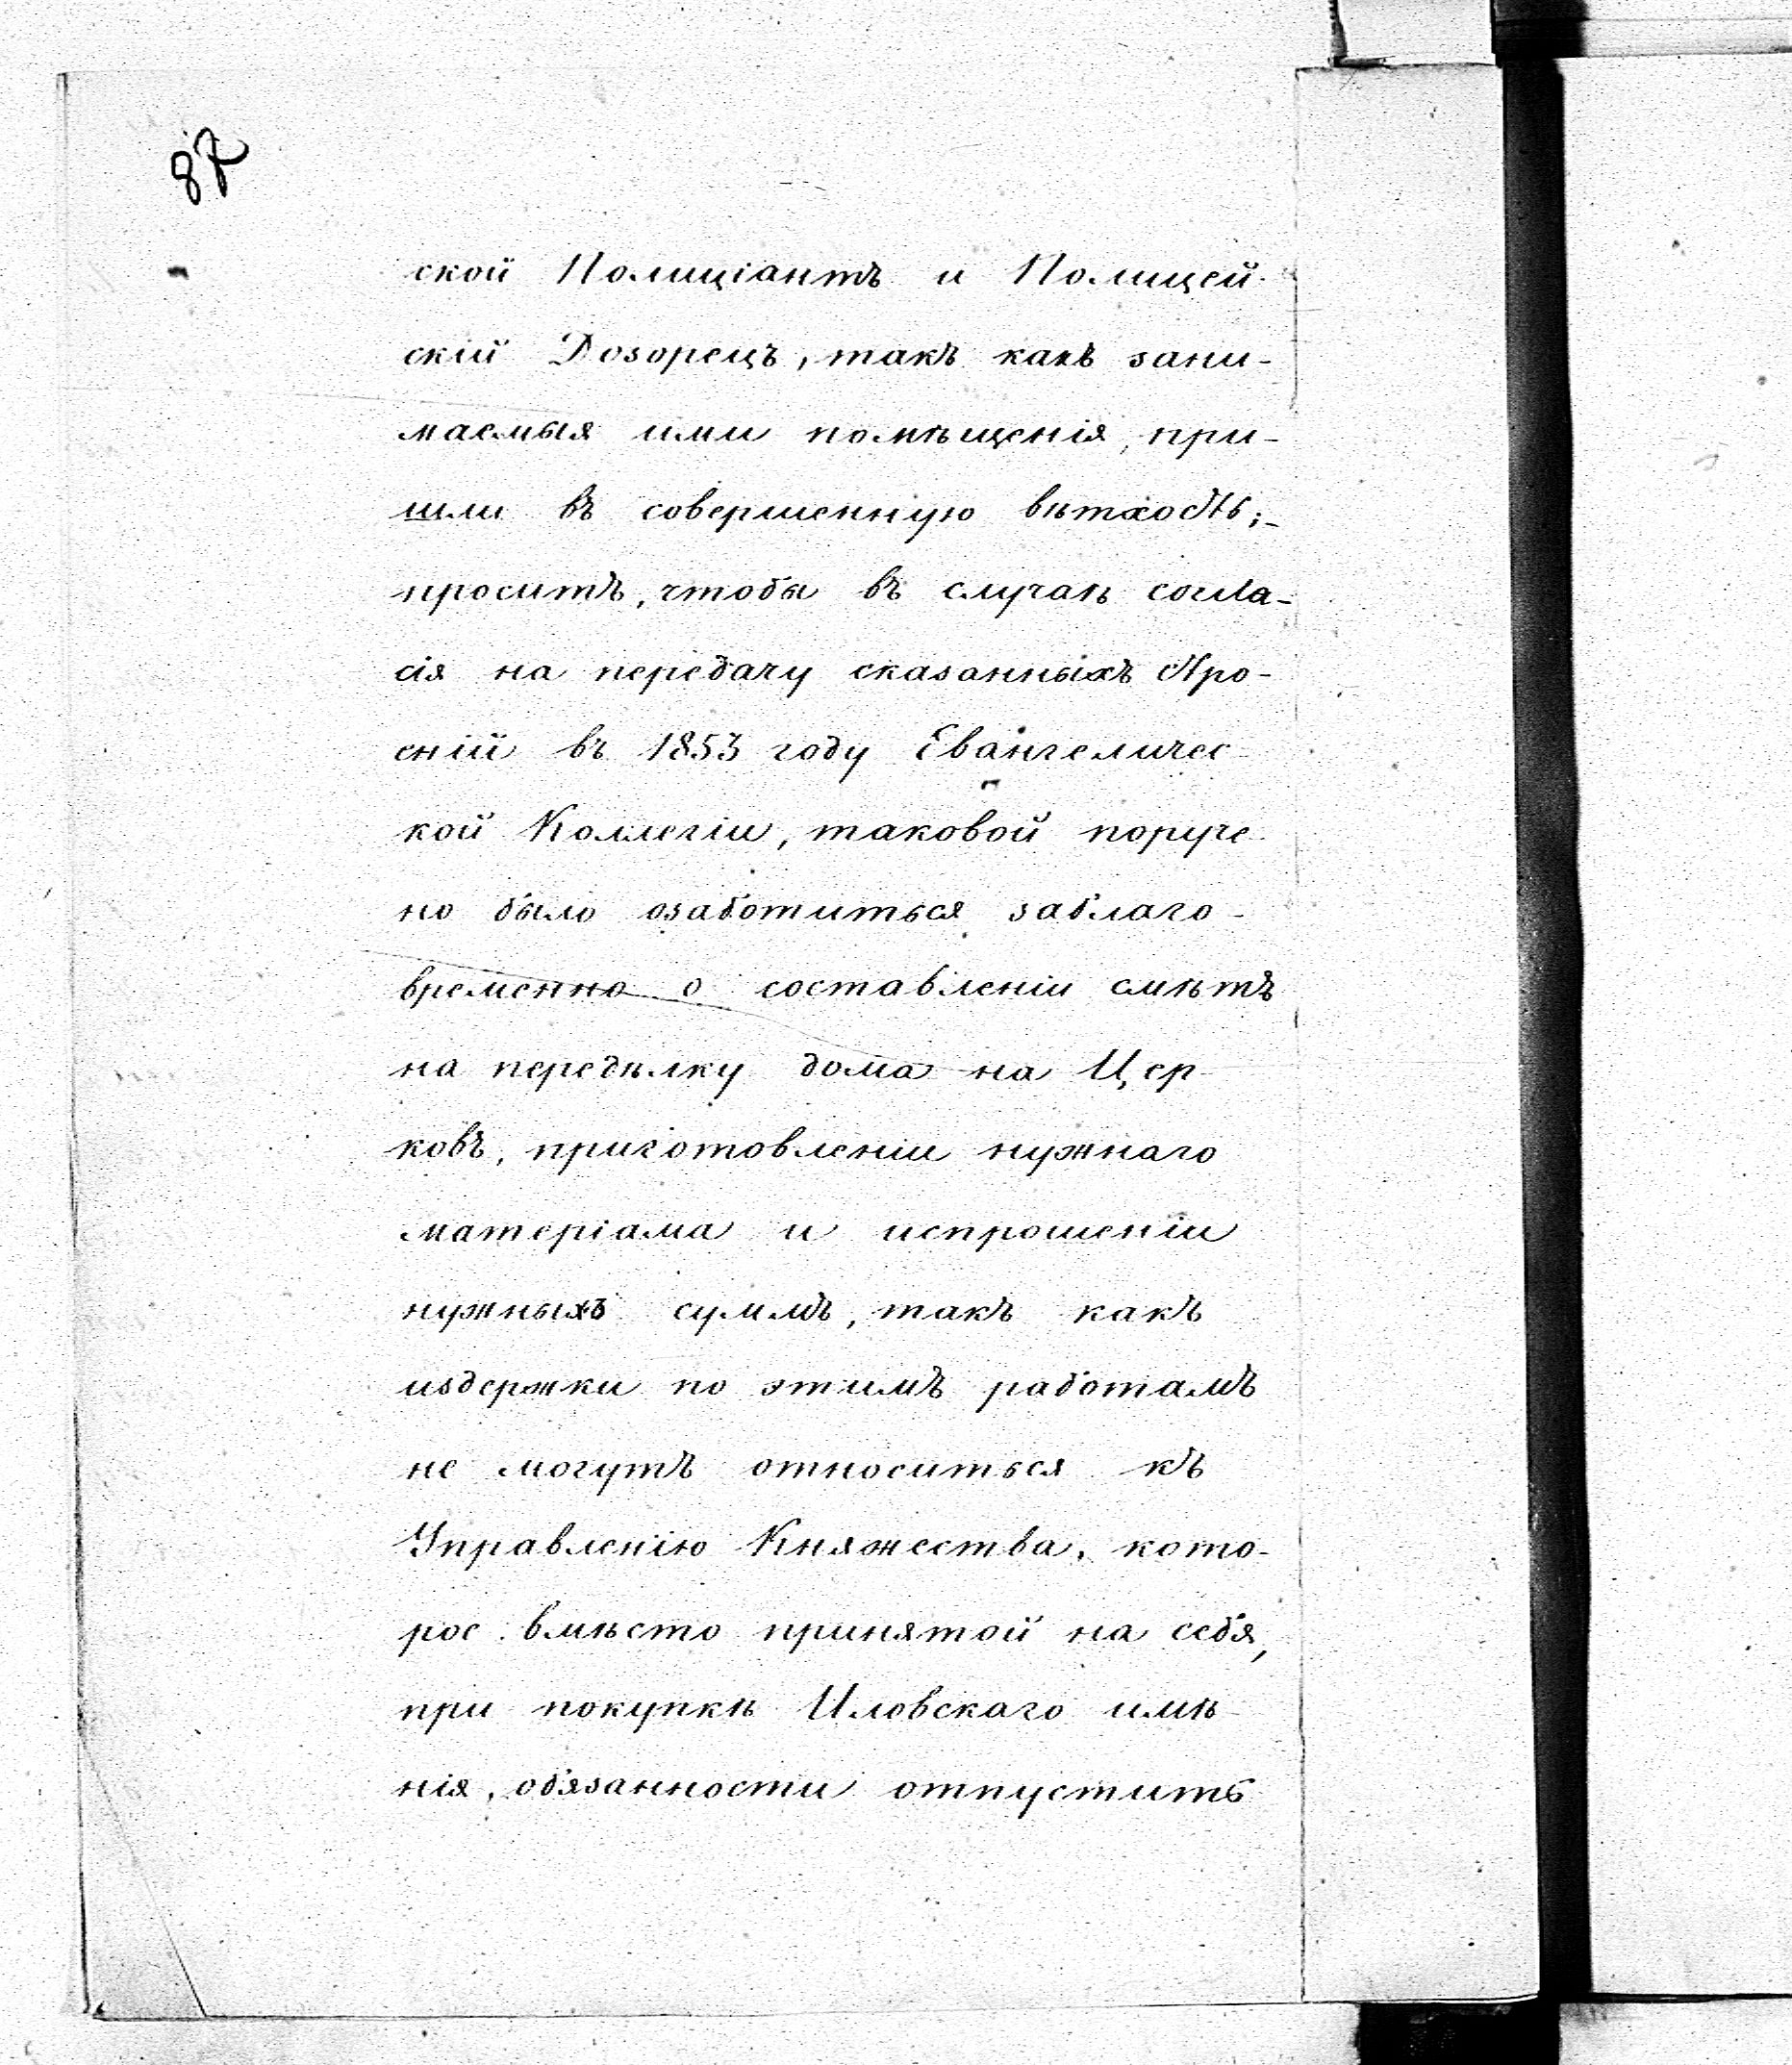 87
ской Полиціантъ и Полицей
скій Дозорецъ, такъ какъ зани-
маемыя ими помѣщенія, при-
шли въ совершенную вѣтхость;-
проситъ, чтобы въ случаѣ согла-
сія на передачу сказанныхъ Стро-
еній въ 1853 году Евангеличес
кой Коллегіи, таковой поруче
но было озаботиться заблаго-
временно о составленіи смѣтъ
на передѣлку дома на Цер
ковъ, приготовленіи нужнаго
матеріала и испрошеніи
нужныхъ суммъ, такъ какъ
издержки по этимъ работамъ
не могутъ относиться къ
Управленію Княжества, кото-
рое вмѣсто принятой на себя,
при покупкѣ Иловскаго имѣ-
нія, обязанности отпустить